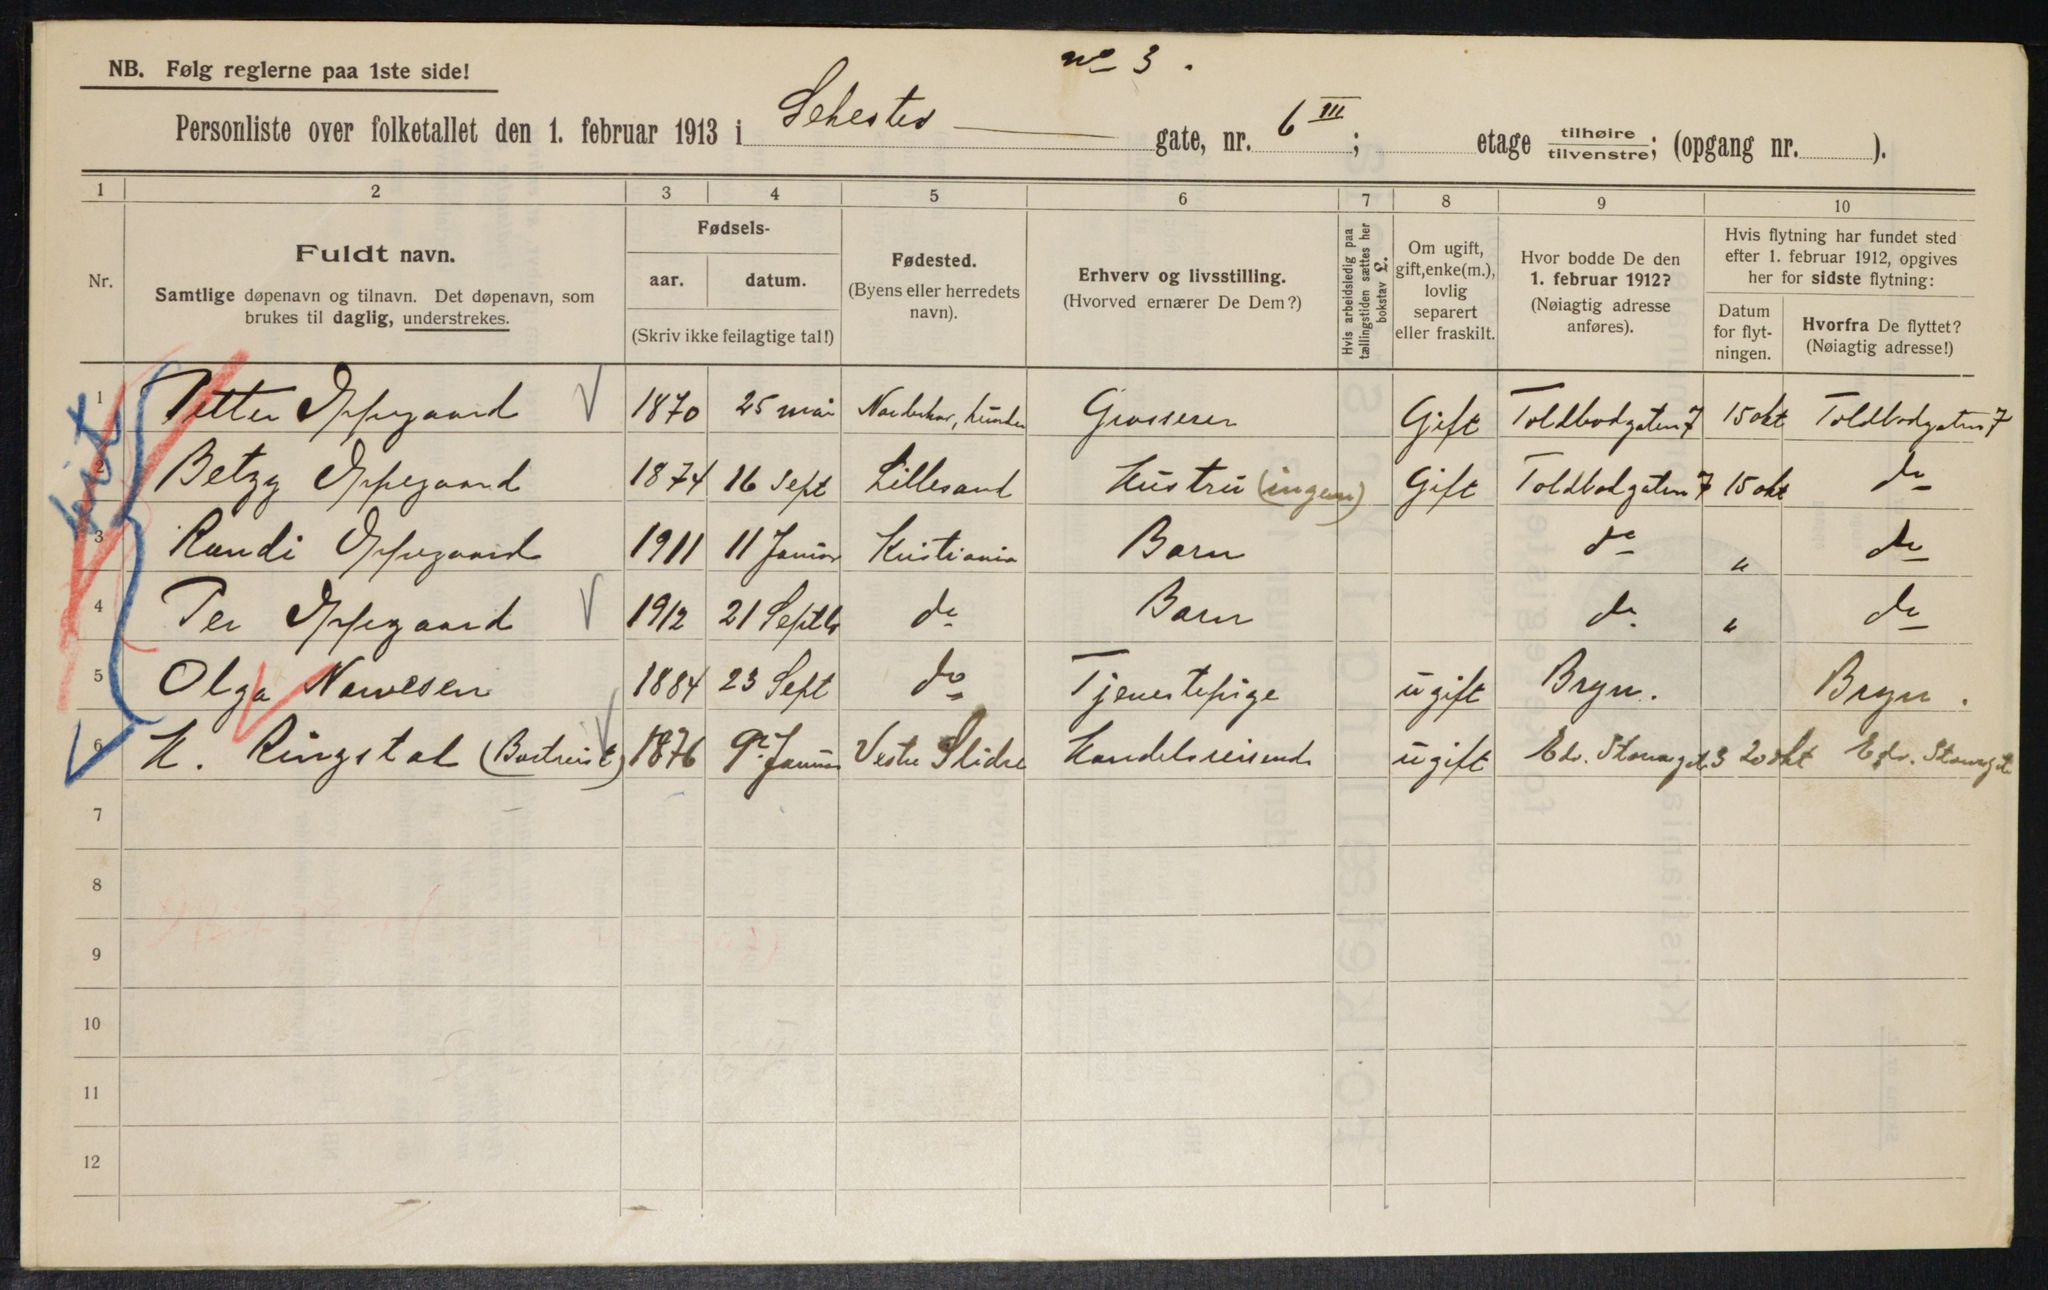 no 3.
NB. Følg reglerne paa 1ste side!
Personliste over folketallet den 1. februar 1913 i Sehested gate, nr. 6 III; etage tilhøire tilvenstre; (opgang nr. ).
1 2 3 4 5 6 7 8 9 10
Nr.
Fuldt navn.
Samtlige døpenavn og tilnavn. Det døpenavn, som
brukes til daglig, understrekes.
Fødsels-
aar. datum.
(Skriv ikke feilagtige tal!)
Fødested.
(Byens eller herredets
navn).
Erhverv og livsstilling.
(Hvorved ernærer De Dem?)
Hvis arbeidsledig paa
tællingstiden sættes her
bokstav L.
Om ugift,
gift, enke(m.),
lovlig
separert
eller fraskilt.
Hvor bodde De den
1. februar 1912?
(Nøiagtig adresse
anføres).
Hvis flytning har fundet sted
efter 1. februar 1912, opgives
her for sidste flytning:
Datum
for flyt-
ningen.
Hvorfra De flyttet?
(Nøiagtig adresse!)
1 Petter Oppegaard 1870 25 mai Grosserer Gift Toldbodgaten 7 15 okt Toldbodgaten 7
2 Betzy Oppegaard 1874 16 Sept Lillesand Hustru (ingen) Gift Toldbodgaten 7 15 okt do
3 Randi Oppegaard 1911 11 Januar Kristiania Barn do " do
4 Per Oppegaard 1912 21 Septb do Barn do " do
5 Olga Narvesen 1884 23 Sept do Tjenestepige ugift Bryn. Bryn.
6 K. Ringstad 1876 9de Januar Vestre Slidre Handelsreisend ugift Edv. Stormsgt 3 20 okt Edv. Stormsgt
7
8
9
10
11
12